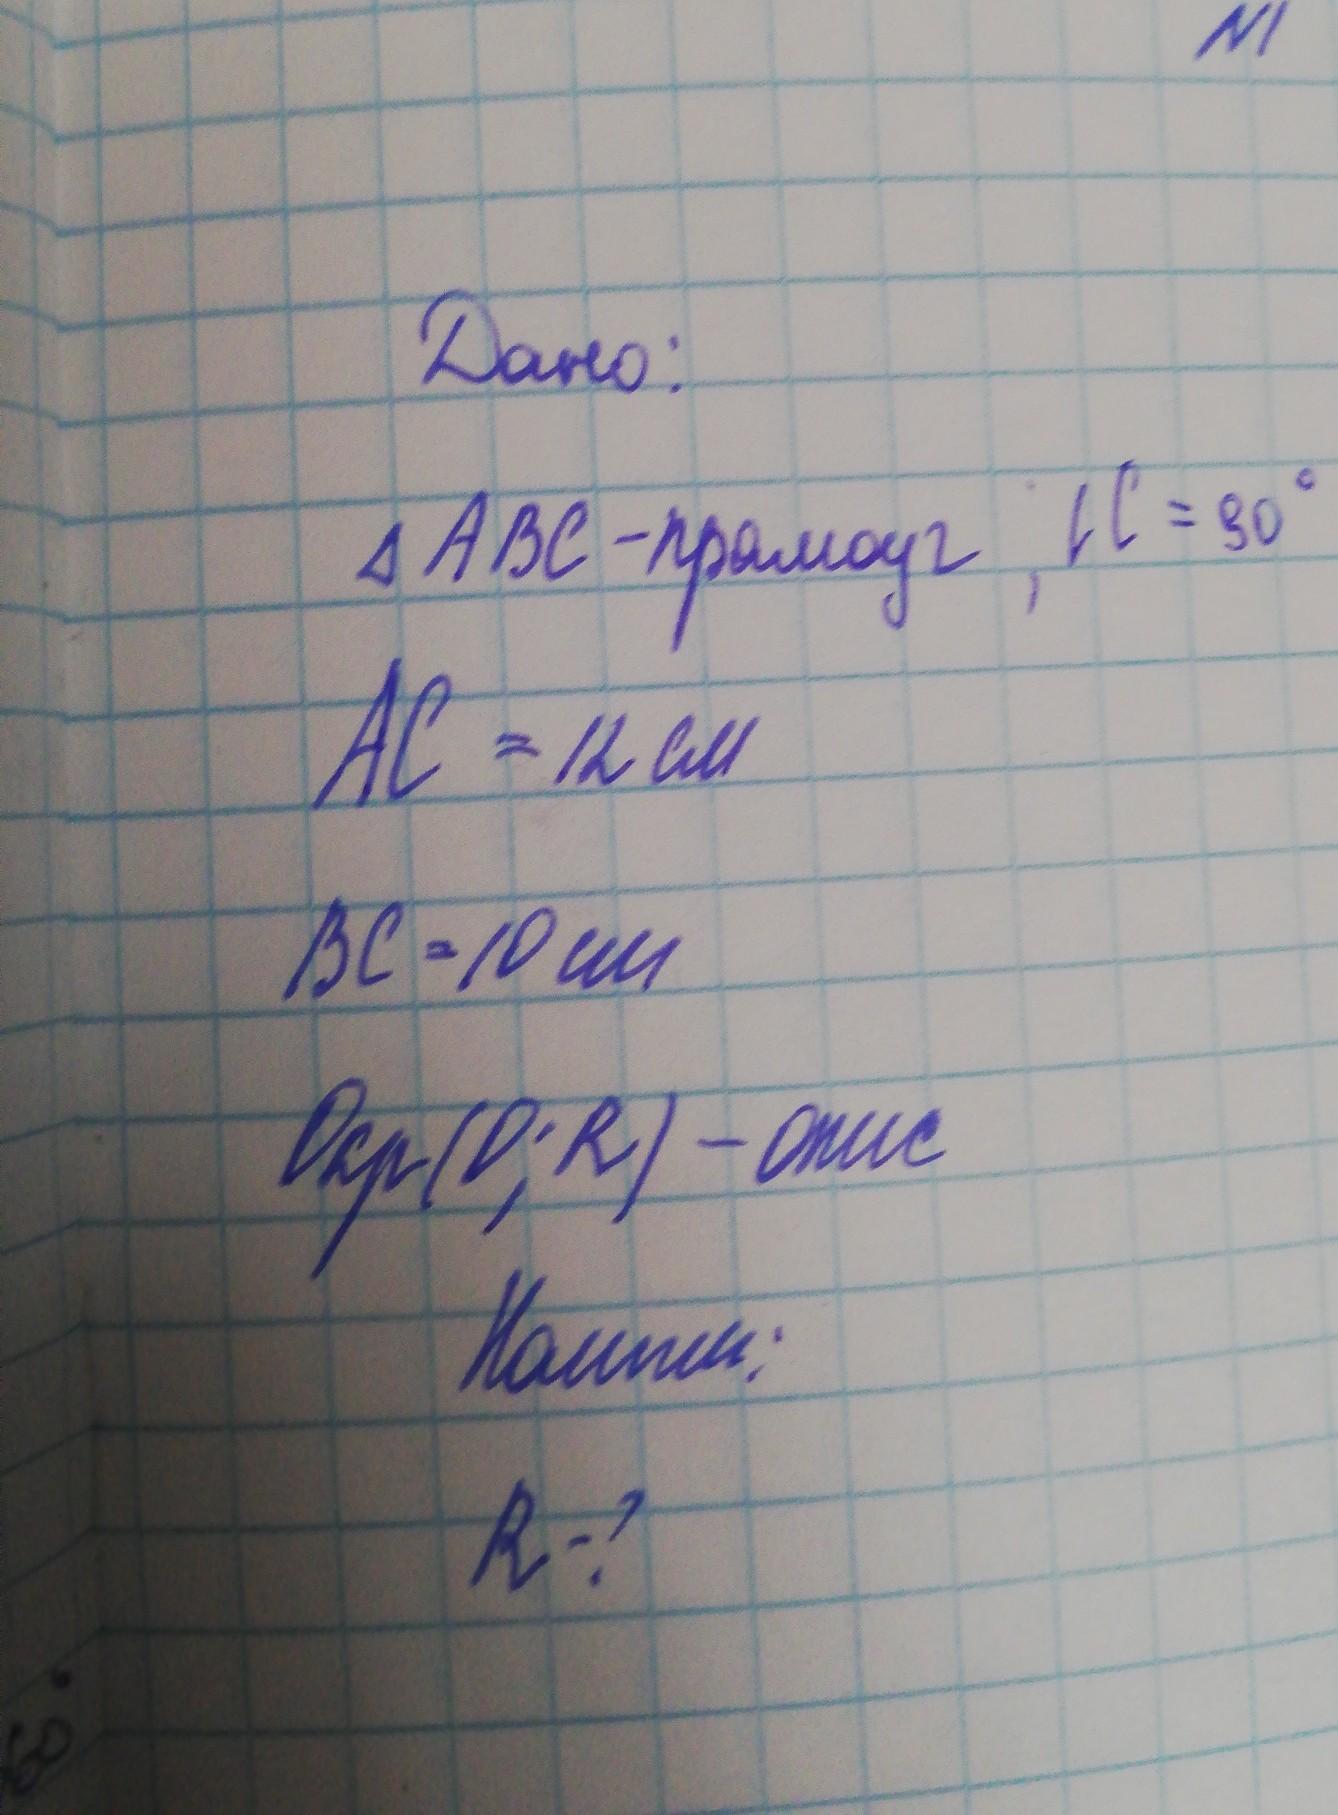 N1
Дано:
△ABC - прямоуг, ∠C = 90°
AC = 12 см
BC = 10 см
Окр(O; R) - опис
Найти:
R - ?
60°